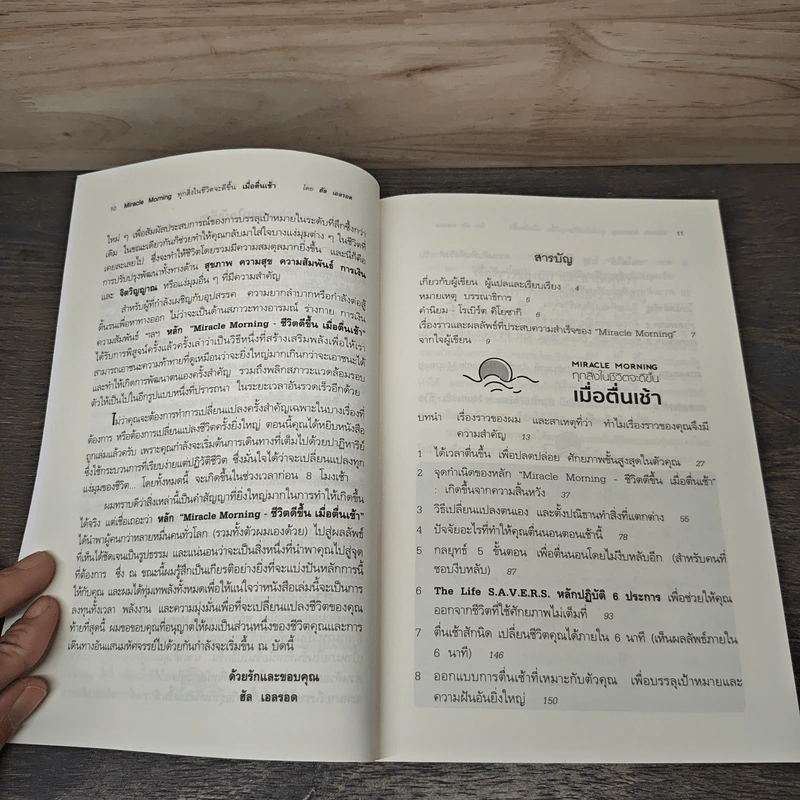 10 Miracle Morning ทุกสิ่งในชีวิตจะดีขึ้น เมื่อตื่นเช้า โดย ฮัล เอลรอด
ใหม่ ๆ เพื่อสัมผัสประสบการณ์ของการบรรลุเป้าหมายในระดับที่ลึกซึ้งกว่า
เดิม ในขณะเดียวกันก็ช่วยทำให้คุณกลับมาใส่ใจบางแง่มุมต่าง ๆ ในชีวิตที่
เคยละเลยไป ซึ่งจะทำให้ชีวิตโดยรวมมีความสมดุลมากยิ่งขึ้น และนี่ก็คือ
การปรับปรุงพัฒนาทั้งทางด้าน สุขภาพ ความสุข ความสัมพันธ์ การเงิน
และ จิตวิญญาณ หรือแง่มุมอื่น ๆ ที่มีความสำคัญ
สำหรับผู้ที่กำลังเผชิญกับอุปสรรค ความยากลำบากหรือกำลังต่อสู้
ดิ้นรนเพื่อหาทางออก ไม่ว่าจะเป็นด้านสภาวะทางอารมณ์ ร่างกาย การเงิน
ความสัมพันธ์ ฯลฯ หลัก “Miracle Morning - ชีวิตดีขึ้น เมื่อตื่นเช้า”
ได้รับการพิสูจน์ครั้งแล้วครั้งเล่าว่าเป็นวิธีหนึ่งที่สร้างเสริมพลังเพื่อให้เรา
สามารถเอาชนะความท้าทายที่ดูเหมือนว่าจะยิ่งใหญ่มากเกินกว่าจะเอาชนะได้
และทำให้เกิดการพัฒนาตนเองครั้งสำคัญ รวมถึงพลิกสภาวะแวดล้อมรอบ
ตัวให้เป็นไปในอีกรูปแบบหนึ่งที่ปรารถนา ในระยะเวลาอันรวดเร็วอีกด้วย
ไม่ว่าคุณจะต้องการทำการเปลี่ยนแปลงครั้งสำคัญเฉพาะในบางเรื่องที่
ต้องการ หรือต้องการเปลี่ยนแปลงชีวิตครั้งยิ่งใหญ่ ตอนนี้คุณได้หยิบหนังสือ
ถูกเล่มแล้วครับ เพราะคุณกำลังจะเริ่มต้นการเดินทางที่เต็มไปด้วยปาฏิหาริย์
ซึ่งใช้กระบวนการที่เรียบง่ายแต่ปฏิวัติชีวิต ซึ่งมั่นใจได้ว่าจะเปลี่ยนแปลงทุก
แง่มุมของชีวิต... โดยทั้งหมดนี้ จะเกิดขึ้นในช่วงเวลาก่อน 8 โมงเช้า
ผมทราบดีว่าสิ่งเหล่านี้เป็นคำสัญญาที่ยิ่งใหญ่มากในการทำให้เกิดขึ้น
ได้จริง แต่เชื่อเถอะว่า หลัก “Miracle Morning - ชีวิตดีขึ้น เมื่อตื่นเช้า”
ได้นำพาผู้คนกว่าหลายหมื่นคนทั่วโลก (รวมทั้งตัวผมเองด้วย) ไปสู่ผลลัพธ์
ที่เห็นได้ชัดเจนเป็นรูปธรรม และแน่นอนว่าจะเป็นสิ่งหนึ่งที่นำพาคุณไปสู่จุด
ที่ต้องการ ซึ่ง ณ ขณะนี้ผมรู้สึกเป็นเกียรติอย่างยิ่งที่จะแบ่งปันหลักการนี้
ให้กับคุณ และผมได้ทุ่มเทพลังทั้งหมดเพื่อให้แน่ใจว่าหนังสือเล่มนี้จะเป็นการ
ลงทุนทั้งเวลา พลังงาน และความมุ่งมั่นเพื่อที่จะเปลี่ยนแปลงชีวิตของคุณ
ท้ายที่สุดนี้ ผมขอขอบคุณที่อนุญาตให้ผมเป็นส่วนหนึ่งของชีวิตคุณและการ
เดินทางอันแสนมหัศจรรย์ไปด้วยกันกำลังจะเริ่มขึ้น ณ บัดนี้
ด้วยรักและขอบคุณ
ฮัล เอลรอด
11
สารบัญ
เกี่ยวกับผู้เขียน ผู้แปลและเรียบเรียง 4
หมายเหตุ บรรณาธิการ 5
คำนิยม - โรเบิร์ต คิโยซากิ 6
เรื่องราวและผลลัพธ์ที่ประสบความสำเร็จของ “Miracle Morning” 7
จากใจผู้เขียน 9
MIRACLE MORNING
ทุกสิ่งในชีวิตจะดีขึ้น
เมื่อตื่นเช้า
บทนำ เรื่องราวของผม และสาเหตุที่ว่า ทำไมเรื่องราวของคุณจึงมี
ความสำคัญ 13
1 ได้เวลาตื่นขึ้น เพื่อปลดปล่อย ศักยภาพขั้นสูงสุดในตัวคุณ 27
2 จุดกำเนิดของหลัก “Miracle Morning - ชีวิตดีขึ้น เมื่อตื่นเช้า”
: เกิดขึ้นจากความสิ้นหวัง 37
3 วิธีเปลี่ยนแปลงตนเอง และตั้งปณิธานทำสิ่งที่แตกต่าง 55
4 ปัจจัยอะไรที่ทำให้คุณตื่นนอนตอนเช้านี้ 78
5 กลยุทธ์ 5 ขั้นตอน เพื่อตื่นนอนโดยไม่งีบหลับอีก (สำหรับคนที่
ชอบงีบหลับ) 87
6 The Life S.A.V.E.R.S. หลักปฏิบัติ 6 ประการ เพื่อช่วยให้คุณ
ออกจากชีวิตที่ใช้ศักยภาพไม่เต็มที่ 93
7 ตื่นเช้าสักนิด เปลี่ยนชีวิตคุณได้ภายใน 6 นาที (เห็นผลลัพธ์ภายใน
6 นาที) 146
8 ออกแบบการตื่นเช้าที่เหมาะกับตัวคุณ เพื่อบรรลุเป้าหมายและ
ความฝันอันยิ่งใหญ่ 150